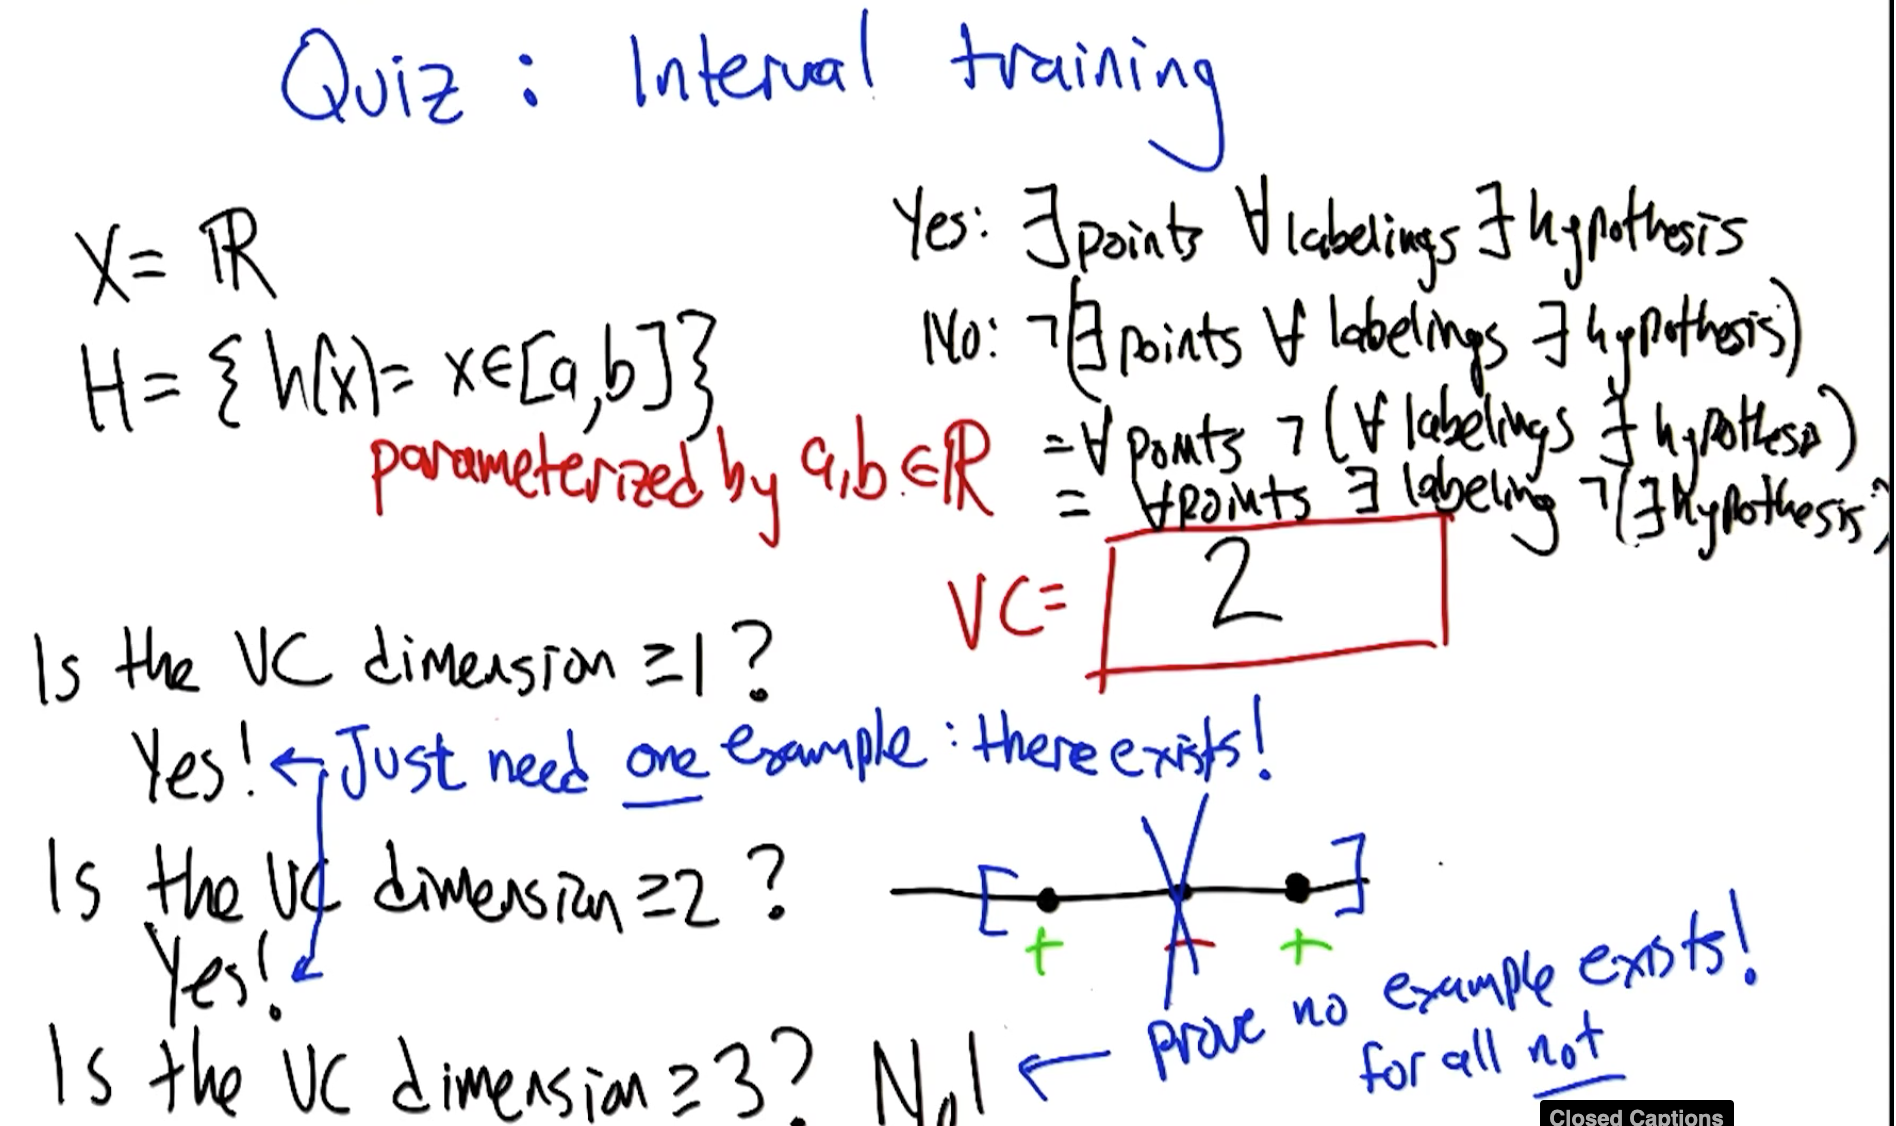 Quiz : Interval training
X = ℝ
H = { h(x) = x∈[a,b] }
parameterized by a,b ∈ ℝ
Yes: ∃ points ∀ labelings ∃ hypothesis
No: ¬(∃ points ∀ labelings ∃ hypothesis)
= ∀ points ¬ (∀ labelings ∃ hypothesis)
= ∀ points ∃ labeling ¬(∃ hypothesis)
VC = 2
Is the VC dimension ≥1 ?
Yes! ← Just need one example : there exists!
Is the VC dimension ≥2 ?
Yes!
[ ]
+ - +
Is the VC dimension ≥3 ? No! ← prove no example exists!
for all not
Closed Captions